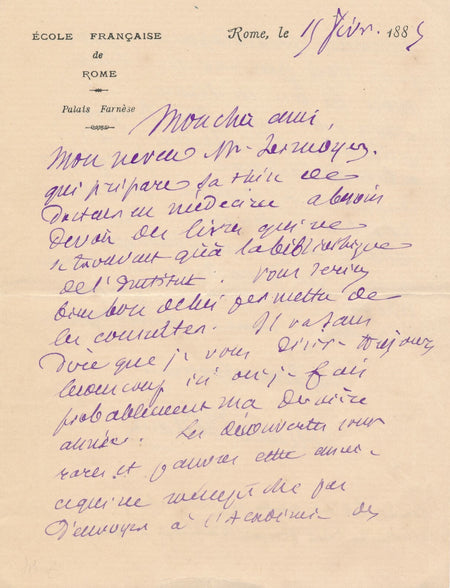 ÉCOLE FRANÇAISE
de
ROME
Palais Farnèse
Rome, le 15 févr. 1885
Mon cher ami,
Mon neveu Mr
qui prépare sa thèse de
docteur en médecine a besoin
de voir des livres qui ne
se trouvent qu'à la bibliothèque
de l'Institut. Vous seriez
bien bon de lui permettre de
les consulter. Il va sans
dire que je vous désire toujours
beaucoup ici où je fais
probablement ma dernière
année. Les découvertes sont
rares et pauvres cette année
ce qui ne m'empêche pas
d'envoyer à l'Académie des